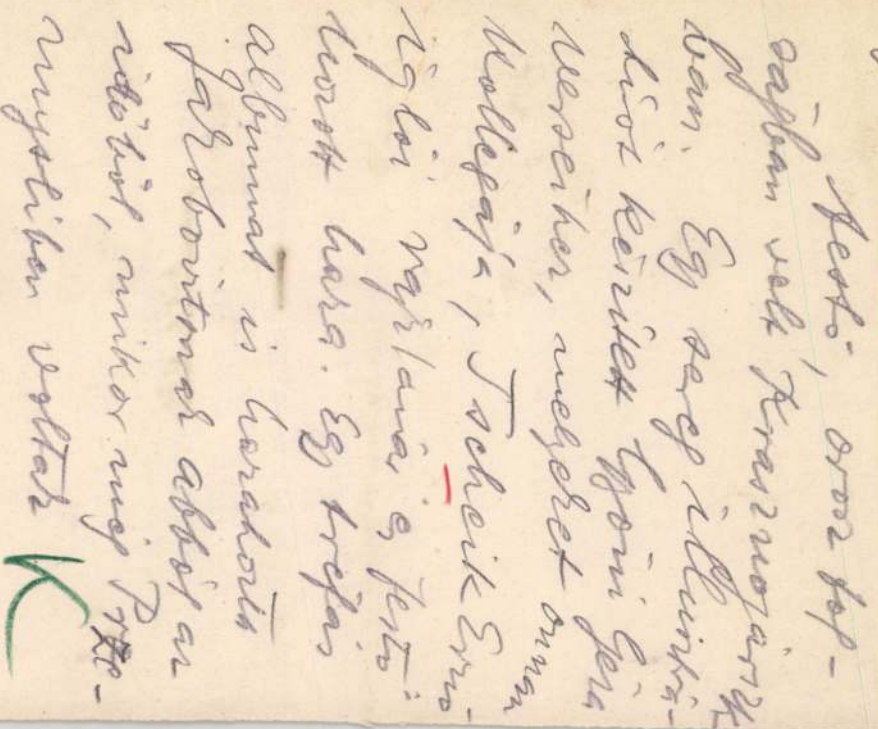 festő, orosz fog-
ságban volt Krasznojárszk-
ban. Egy sereg illusztrá-
ciót készített Gyóni Géza
verseihez, melyeket onnan
kollegája, Tscheik Ernő
iglói rajztanár és festő
hozott haza. Egy tréfás
albumot is hozatott
abból az
időből, mikor még Prze-
myslben voltak
K